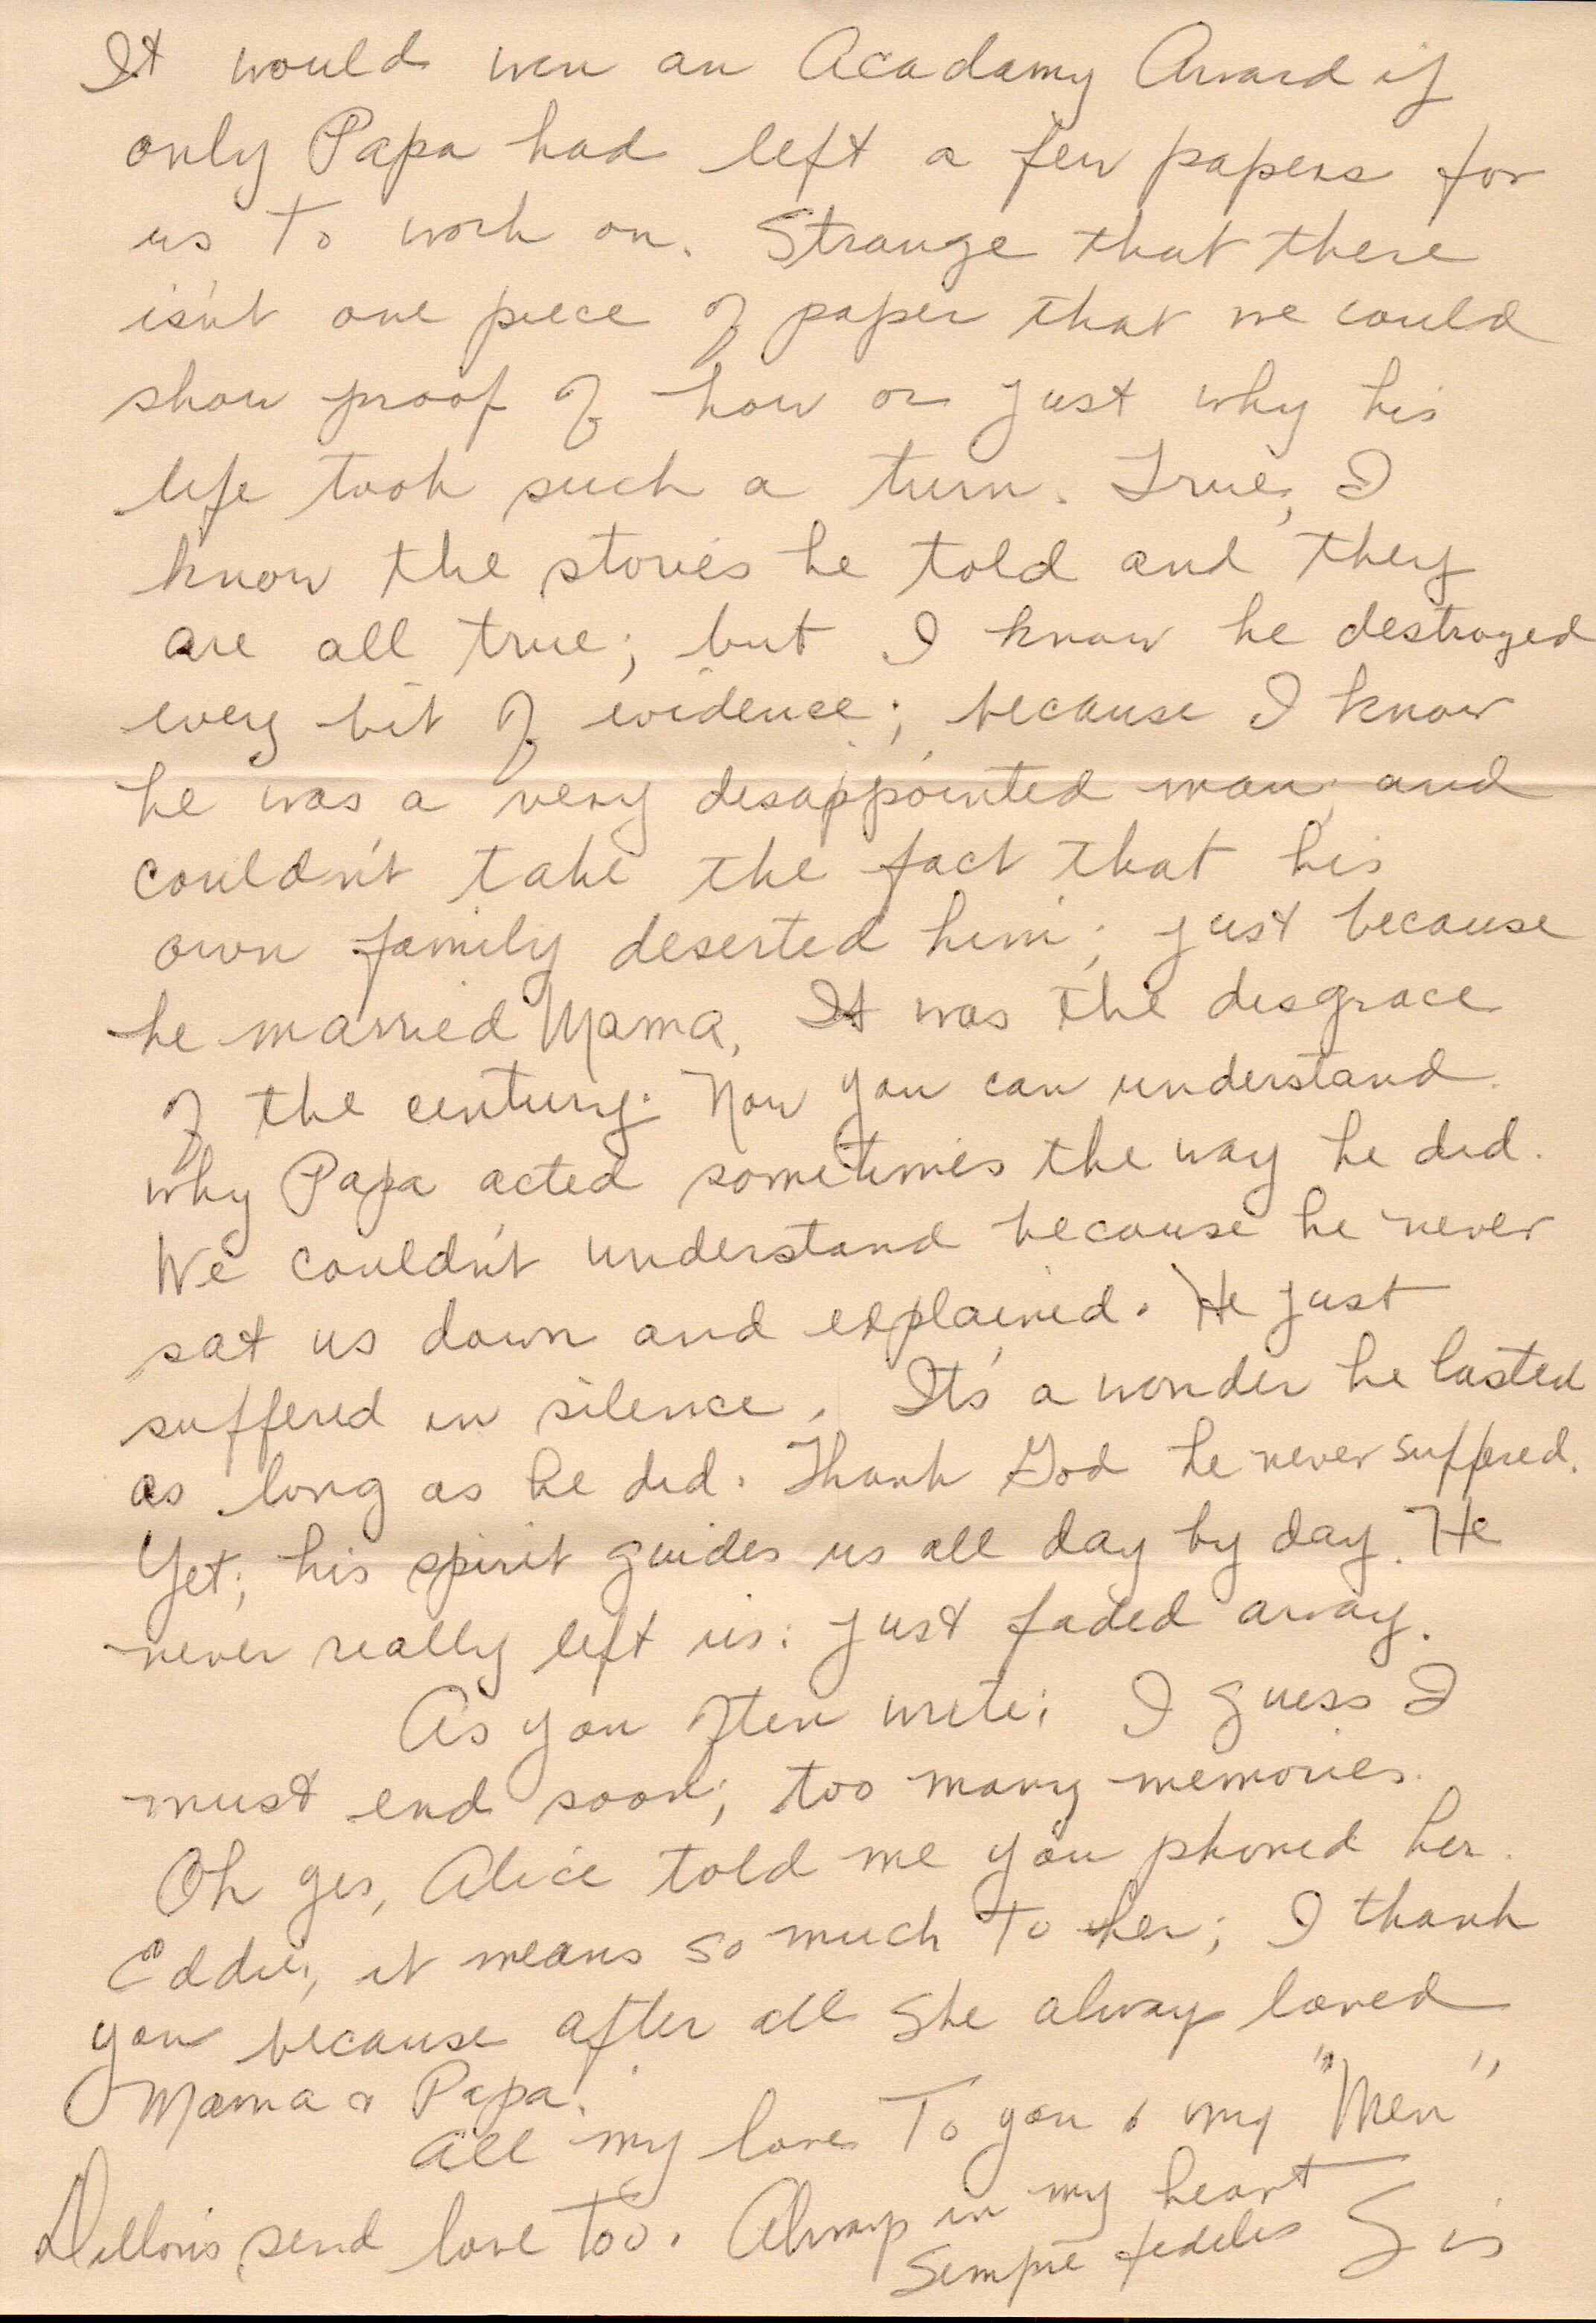 It would win an Acadamy Award if
only Papa had left a few papers for
us to work on. Strange that there
isn't one piece of paper that we could
show proof of how or just why his
life took such a turn. True, I
know the stories he told and they
are all true; but I know he destroyed
every bit of evidence; because I know
he was a very disappointed man; and
couldn't take the fact that his
own family deserted him; just because
he married Mama. It was the disgrace
of the century. Now you can understand
why Papa acted sometimes the way he did.
We couldn't understand because he never
sat us down and explained. He just
suffered in silence. It's a wonder he lasted
as long as he did. Thank God he never suffered.
Yet; his spirit guides us all day by day. He
never really left us: just faded away.
As you often write; I guess I
must end soon; too many memories.
Oh yes, Alice told me you phoned her.
Eddie, it means so much to her; I thank
you because after all she always loved
Mama & Papa.
All my love to you & my "Men"
Dillon's send love too. Always in my heart
Sempre fedelis Sis